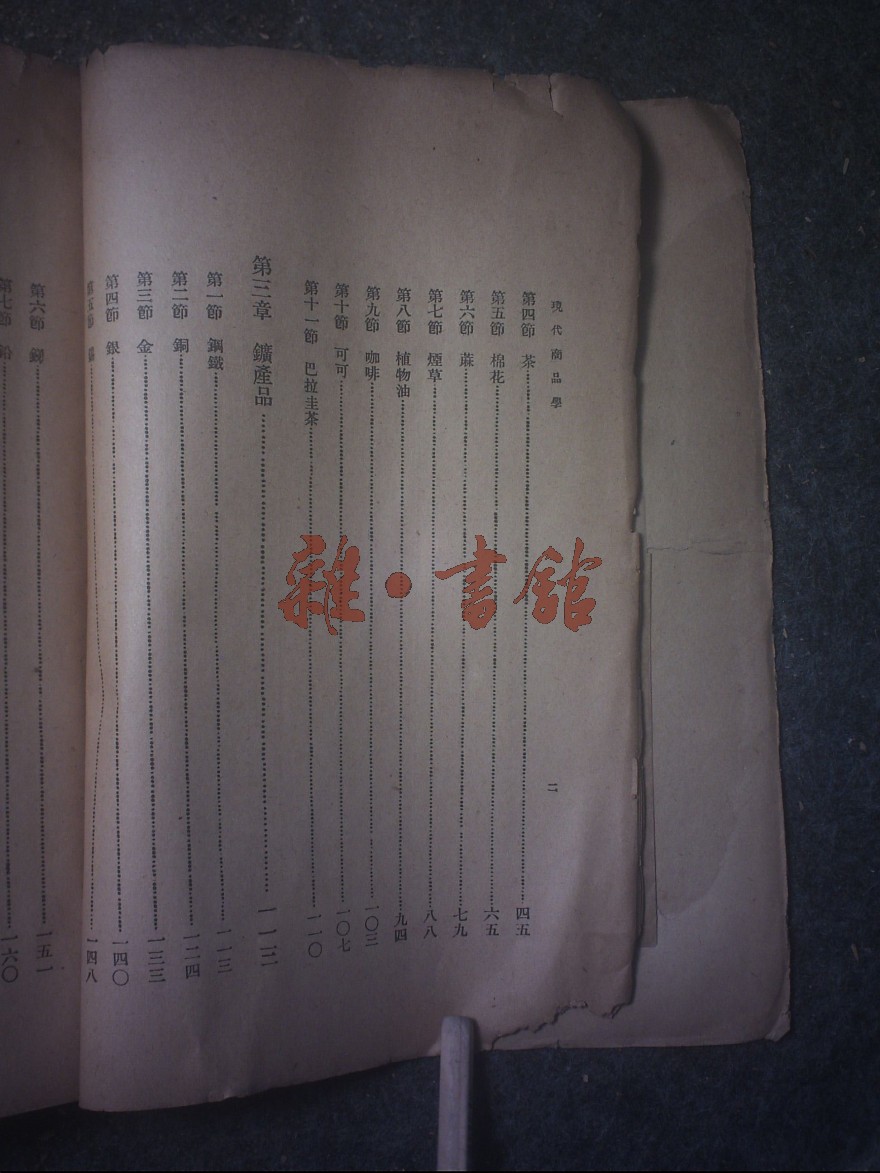 現代商品學
二
第四節 茶 四五
第五節 棉花 六五
第六節 蔴 七九
第七節 煙草 八八
第八節 植物油 九四
第九節 咖啡 一〇三
第十節 可可 一〇七
第十一節 巴拉圭茶 一一〇
第三章 鑛產品 一一二
第一節 鋼鐵 一一三
第二節 銅 一二四
第三節 金 一三三
第四節 銀 一四〇
第五節 一四八
第六節 一五一
第七節 鉛 一六〇
雜·書館